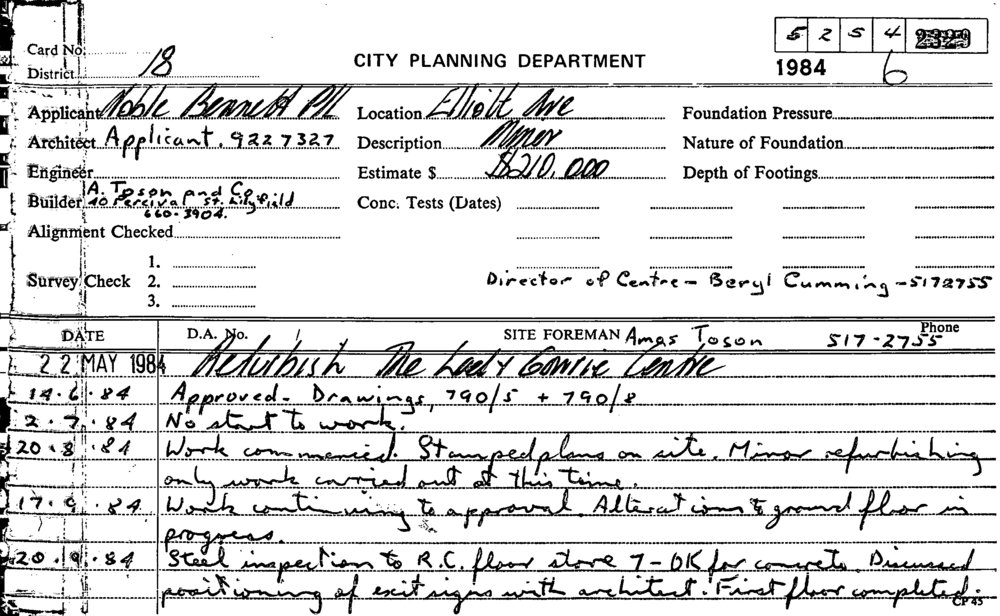 5 2 5 4
Card No.
District 18
CITY PLANNING DEPARTMENT
1984 6
Applicant Noble Bennett P/L Location Elliott Ave Foundation Pressure
Architect Applicant. 922 7327 Description Minor Nature of Foundation
Engineer Estimate $ $210,000 Depth of Footings
Builder A. Toson and Co Conc. Tests (Dates)
40 Percival St. Lilyfield
660-3904.
Alignment Checked
1.
Survey Check 2. Director of Centre - Beryl Cumming - 5172755
3.
DATE D.A. No. SITE FOREMAN Amas Toson Phone 517-2755
22 MAY 1984 Refurbish The Lady Gowrie Centre
14.6.84 Approved - Drawings, 790/5 + 790/8
2.7.84 No start to work.
20.8.84 Work commenced. Stamped plans on site. Minor refurbishing
only work carried out at this time.
17.9.84 Work continuing to approval. Alterations to ground floor in
progress.
20.9.84 Steel inspection to R.C. floor store 7 - OK for concrete. Discussed
positioning of exit signs with architect. First floor completed.
CP 45